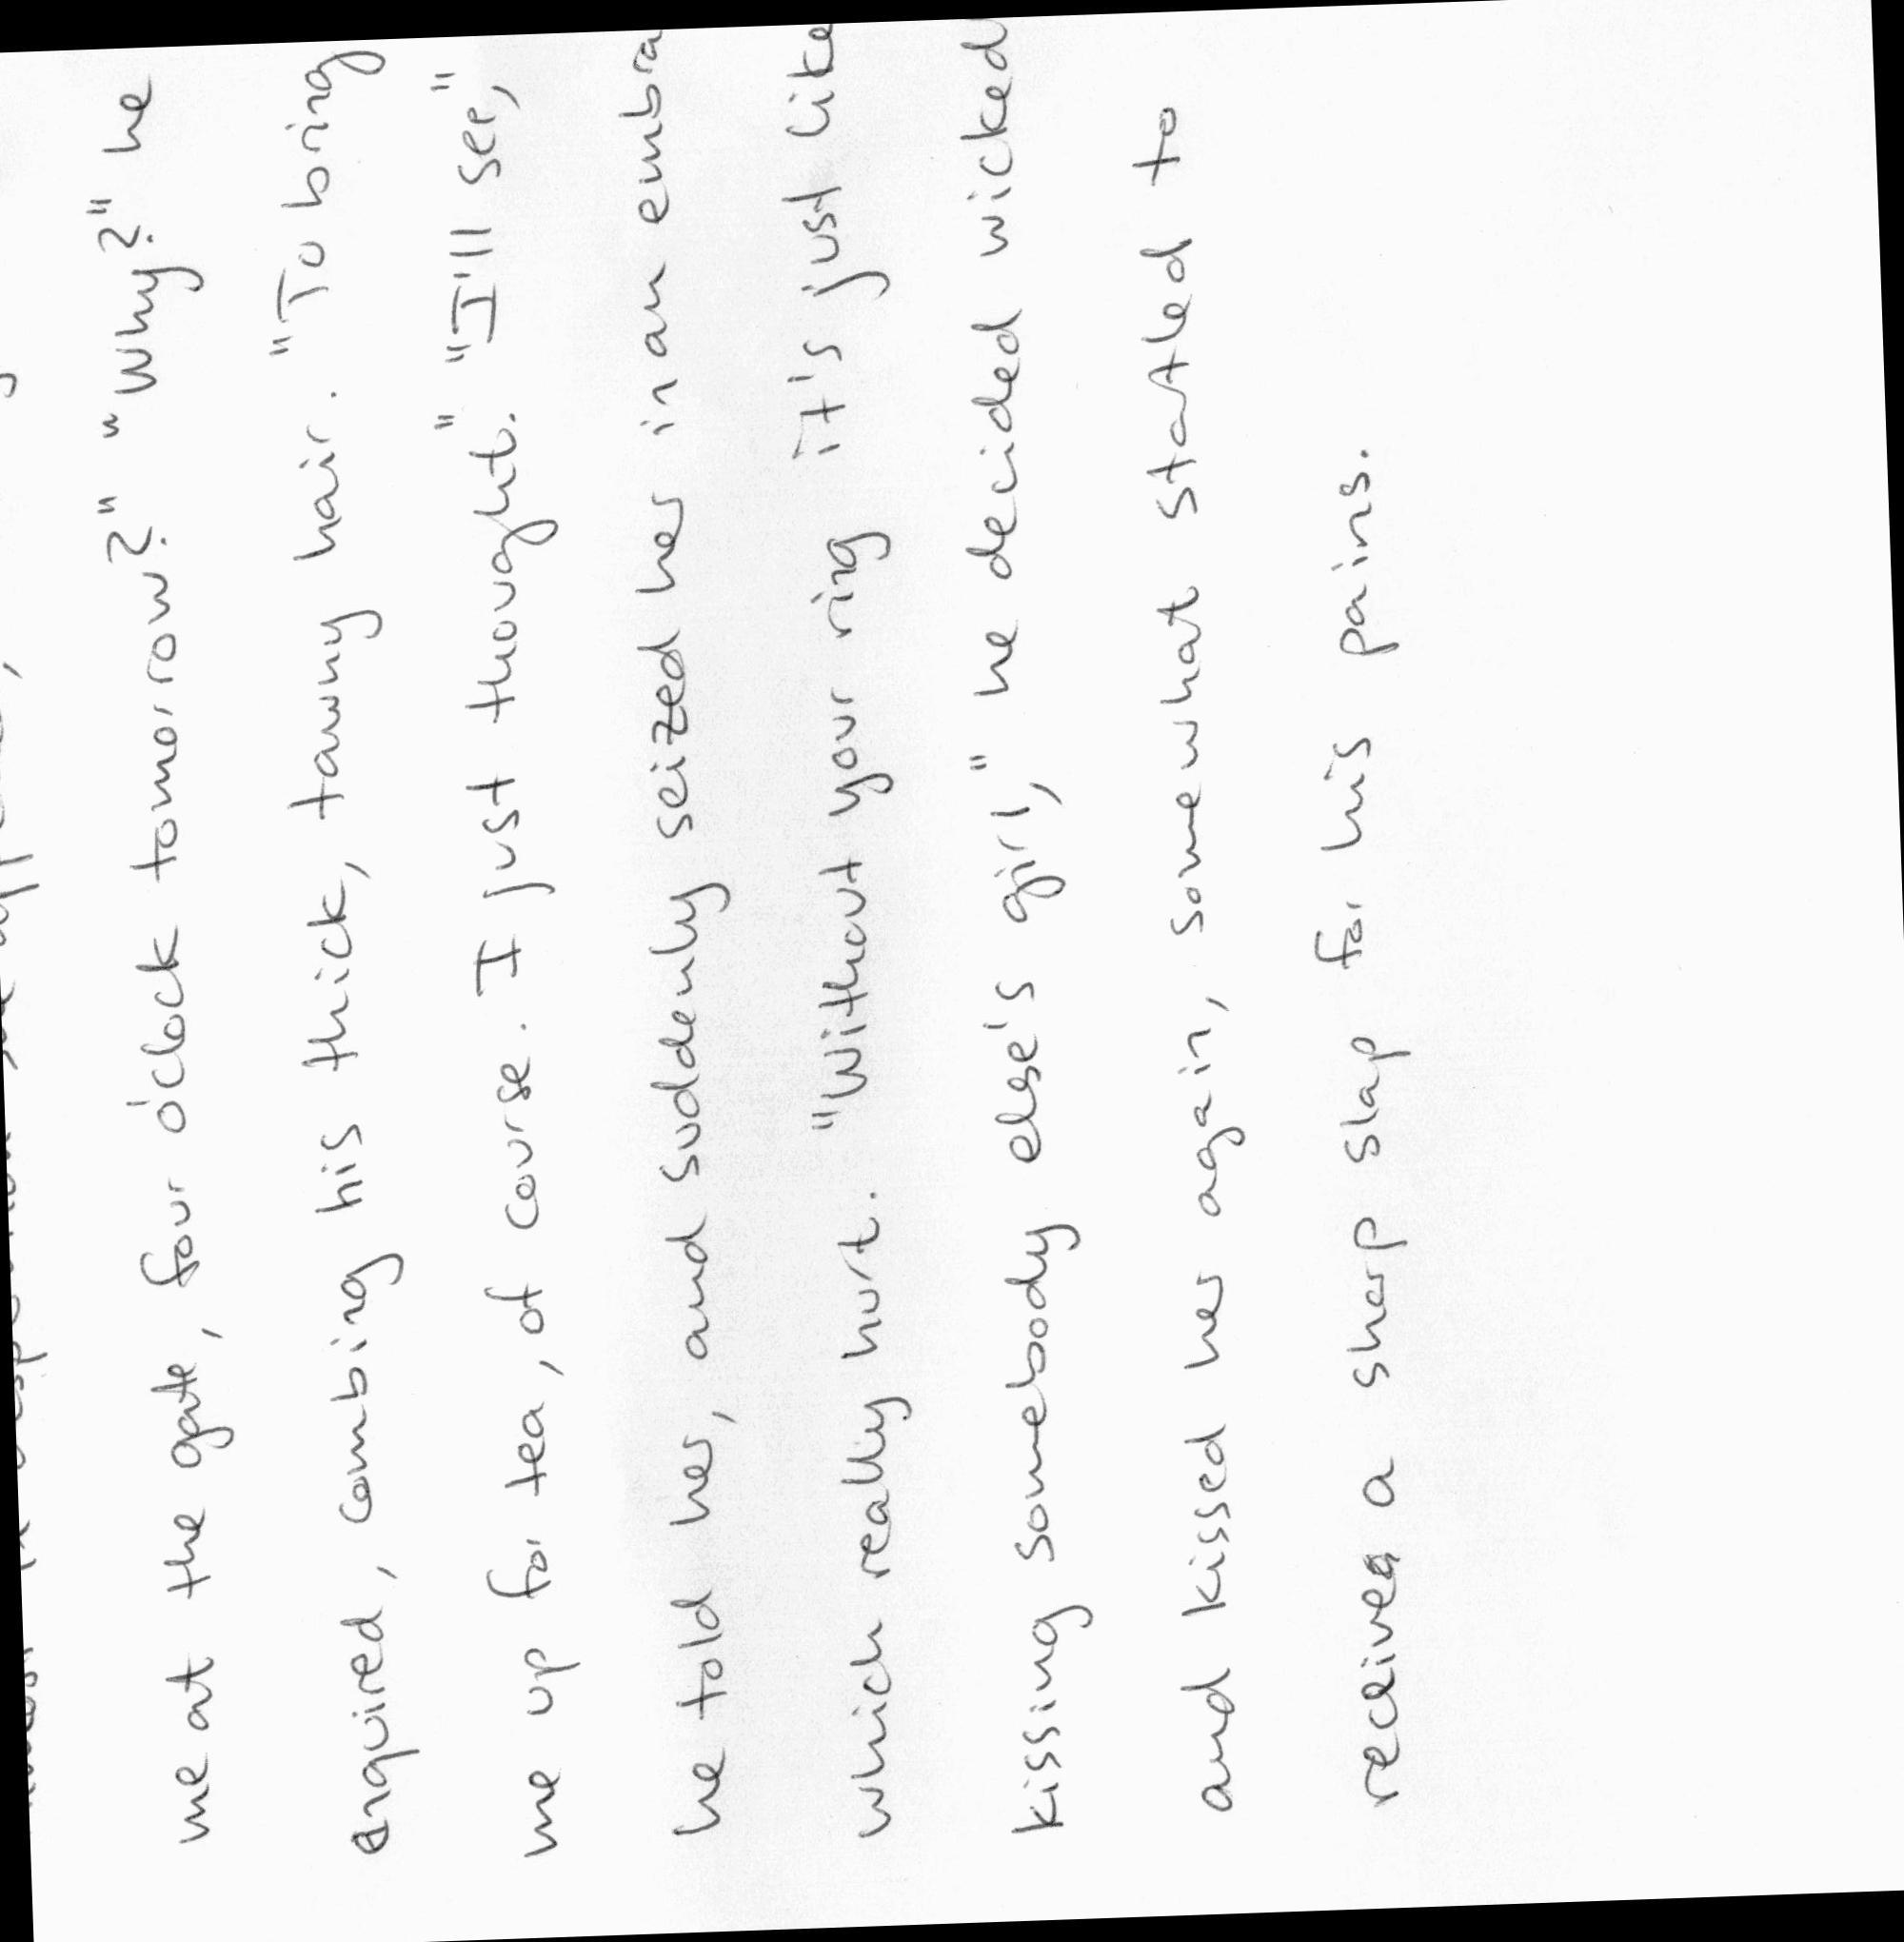 me at the gate, four o'clock tomorrow?" "Why?" he
enquired, combing his thick, tawny hair. "To bring
me up for tea, of course. I just thought." "I'll see,"
he told her, and suddenly seized her in an embra
which really hurt. "Without your ring it's just like
kissing somebody else's girl," he decided wicked
and kissed her again, somewhat startled to
receive a sharp slap for his pains.